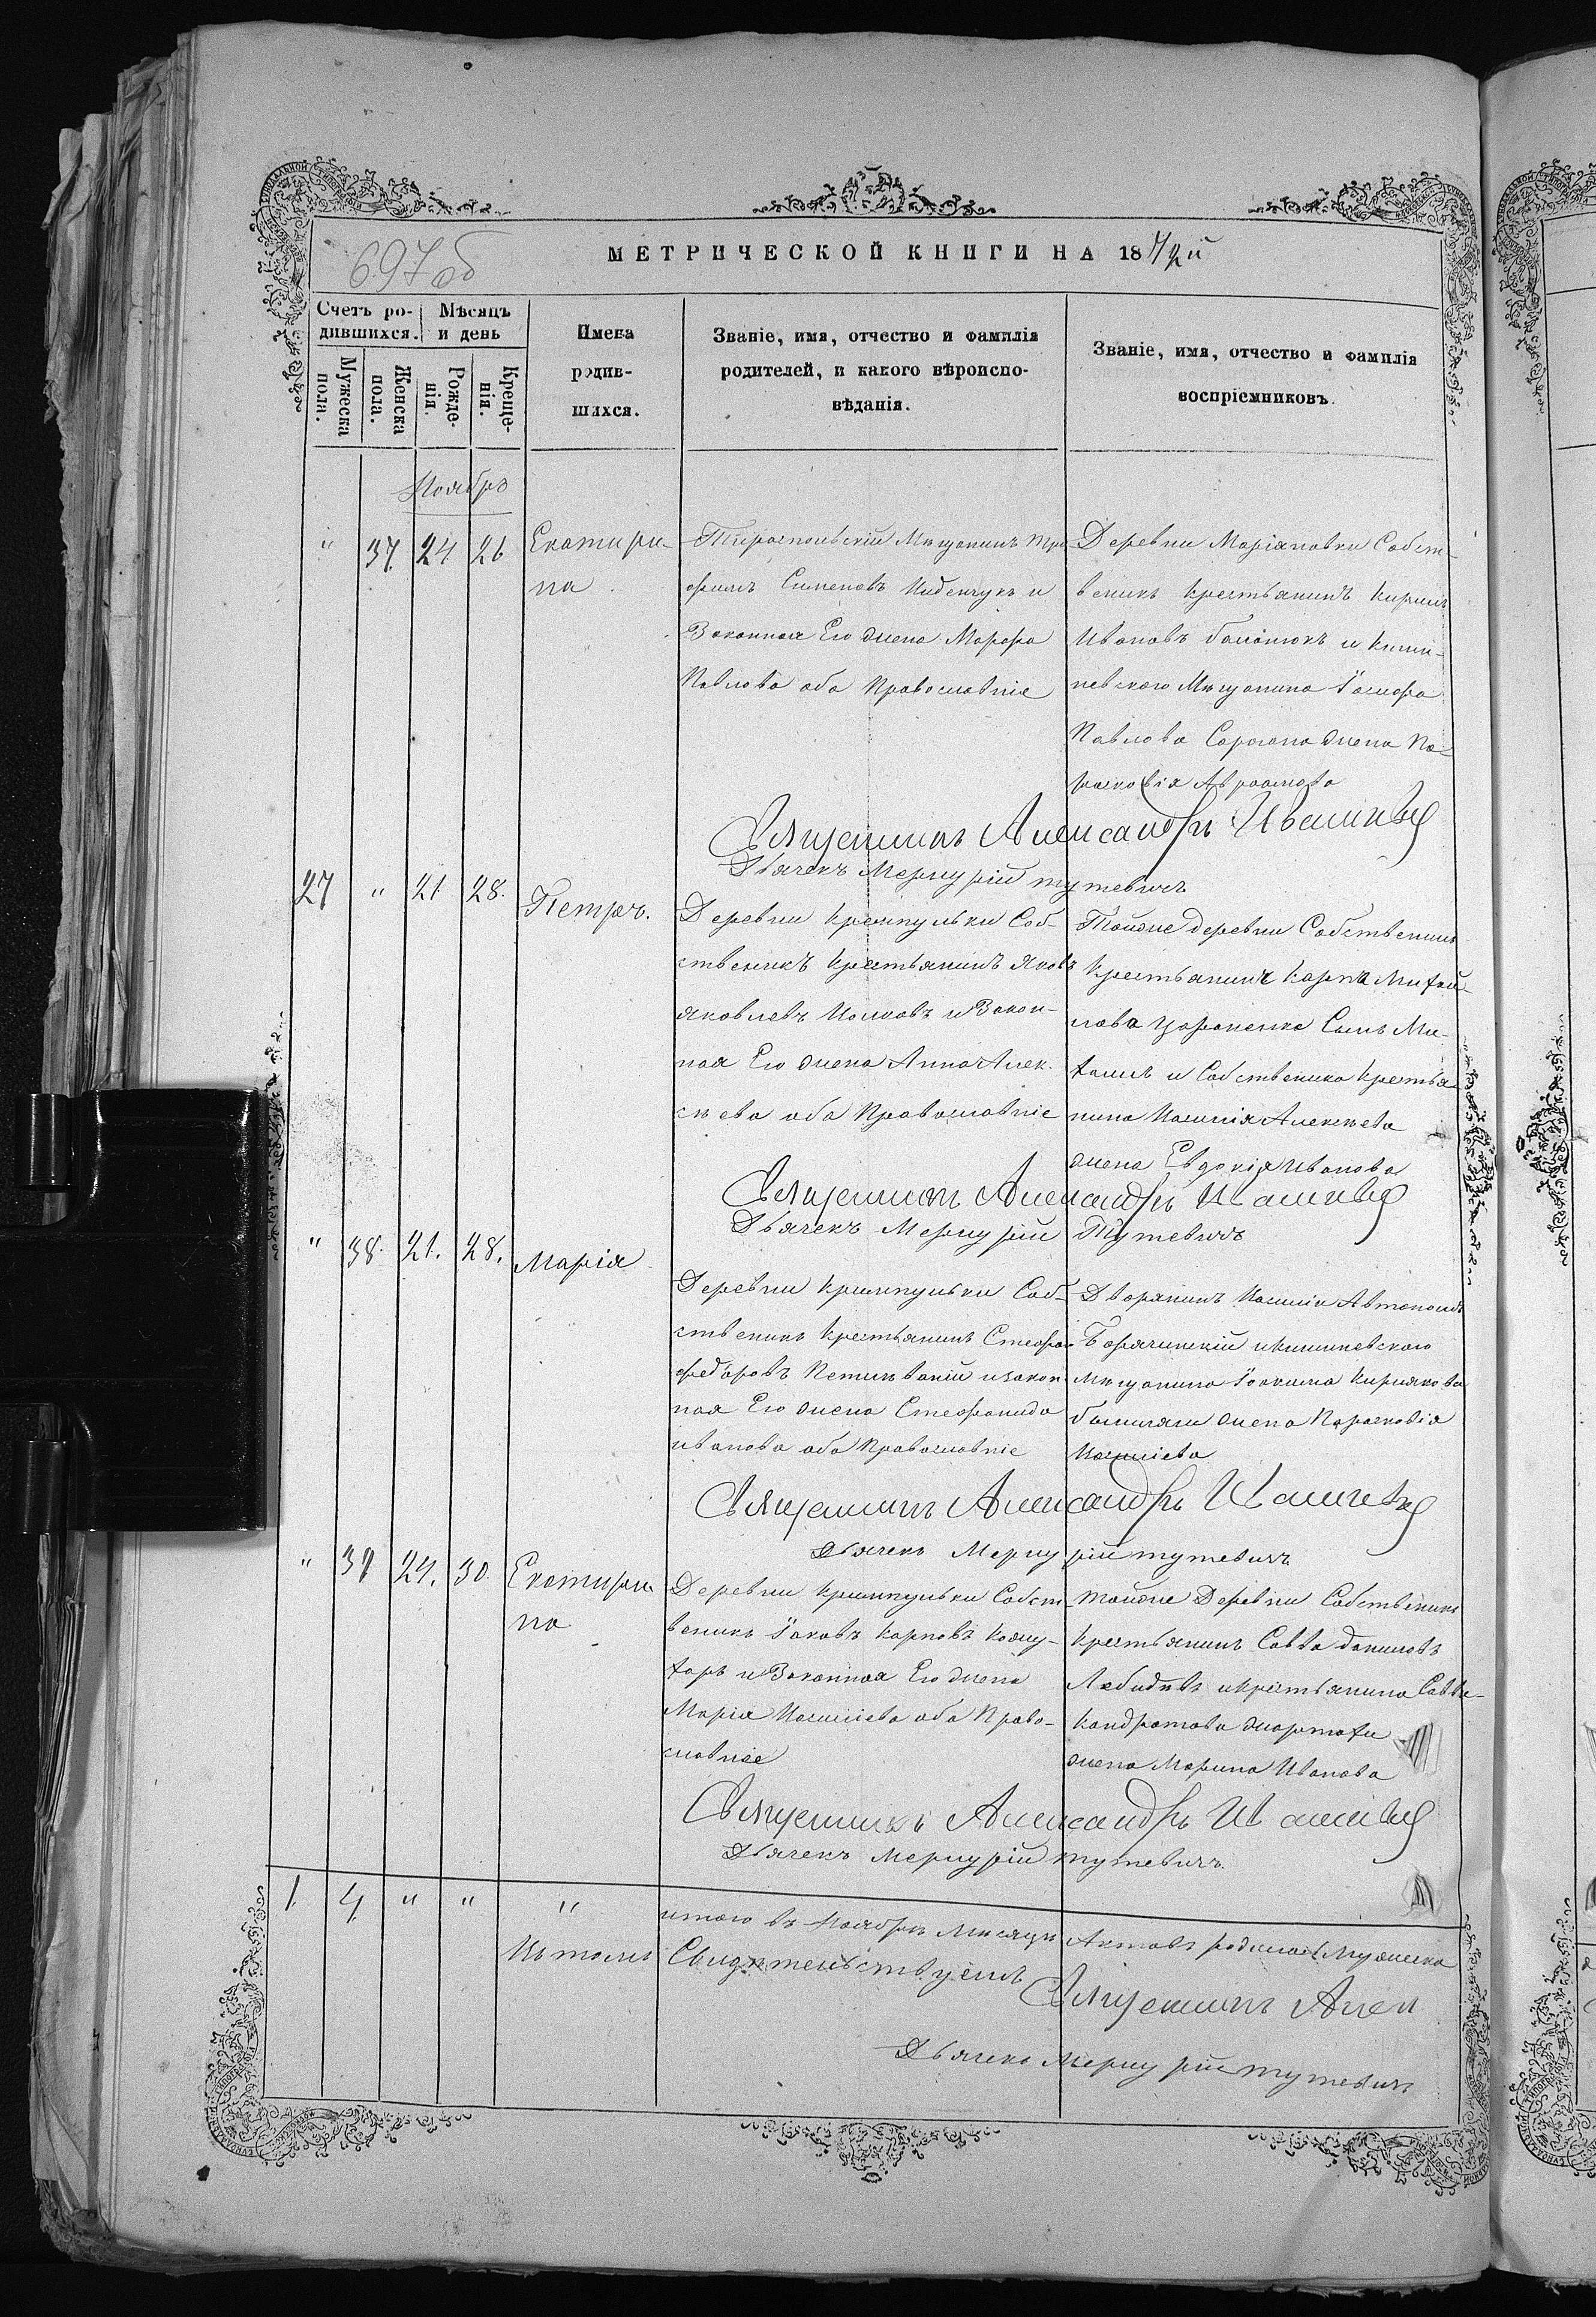 697 об
МЕТРИЧЕСКОЙ КНИГИ НА 1872й
Счетъ ро-
дившихся.
Мужеска
пола.
Женска
пола.
Мѣсяцъ
и день
Рожде-
нія.
Креще-
нія.
Имена
родив-
шихся.
Званіе, имя, отчество и фамилія
родителей, и какого вѣроиспо-
вѣданія.
Званіе, имя, отчество и фамилія
воспріемниковъ.
Ноябръ
" 37 24 26
Екатири-
на
Тираспольскій Мѣщанинъ Тро-
фимъ Сименовъ и
Законная Его жена Марфа
Павлова оба Православніе
Деревни Маріяновки Собст-
веникъ крестьянинъ Кирилъ
Ивановъ и Киши-
невского Мѣщанина
Павлова жена Па-
расковія Авраамова
Священникъ Александръ
Дьячекъ Меркурій Тутевичъ
27 " 21 28.
Петръ.
Деревни Соб-
ственикъ Крестьянинъ Яковъ
Яковлевъ и Закон-
ная Его жена Анна Алек-
сѣева оба Православніе
Тойже деревни Собственикъ
Крестьянина Карпа Михай-
лова Сынъ Ми-
хаилъ и Собственика Крестья-
нина Василія Алексѣева
жена Евдокія Иванова
Священникъ Александръ
Дьячекъ Меркурій Тутевичъ
" 38. 21. 28.
Марія
Деревни Соб-
ственикъ Крестьянинъ Стефанъ
Федоровъ и закон-
ная Его жена Стефанида
Иванова оба Православніе
Дворянинъ Василій Автономовъ
и кишиневского
мѣщанина Іоакима Кирякова
жена Парасковія
Василіева
Священникъ Александръ
Дьячекъ Меркурій Тутевичъ
" 39 24. 30.
Екатири-
на
Деревни Собст-
веникъ Іаковъ Карповъ Кожу-
харь и Законная Его жена
Марія Василіева оба Право-
славніе
Тойже Деревни Собственикъ
Крестьянинъ Савва Даниловъ
и крестьянина Саввы
Кондратова
жена Марина Иванова
Священникъ Александръ
Дьячекъ Меркурій Тутевичъ.
1. 4. " " "
итого въ Ноябрѣ Мѣсяцѣ Актовъ Мужеска
Въ томъ Свидѣтельствуемъ
Священникъ Алек
Дьячекъ Меркурій Тутевичъ